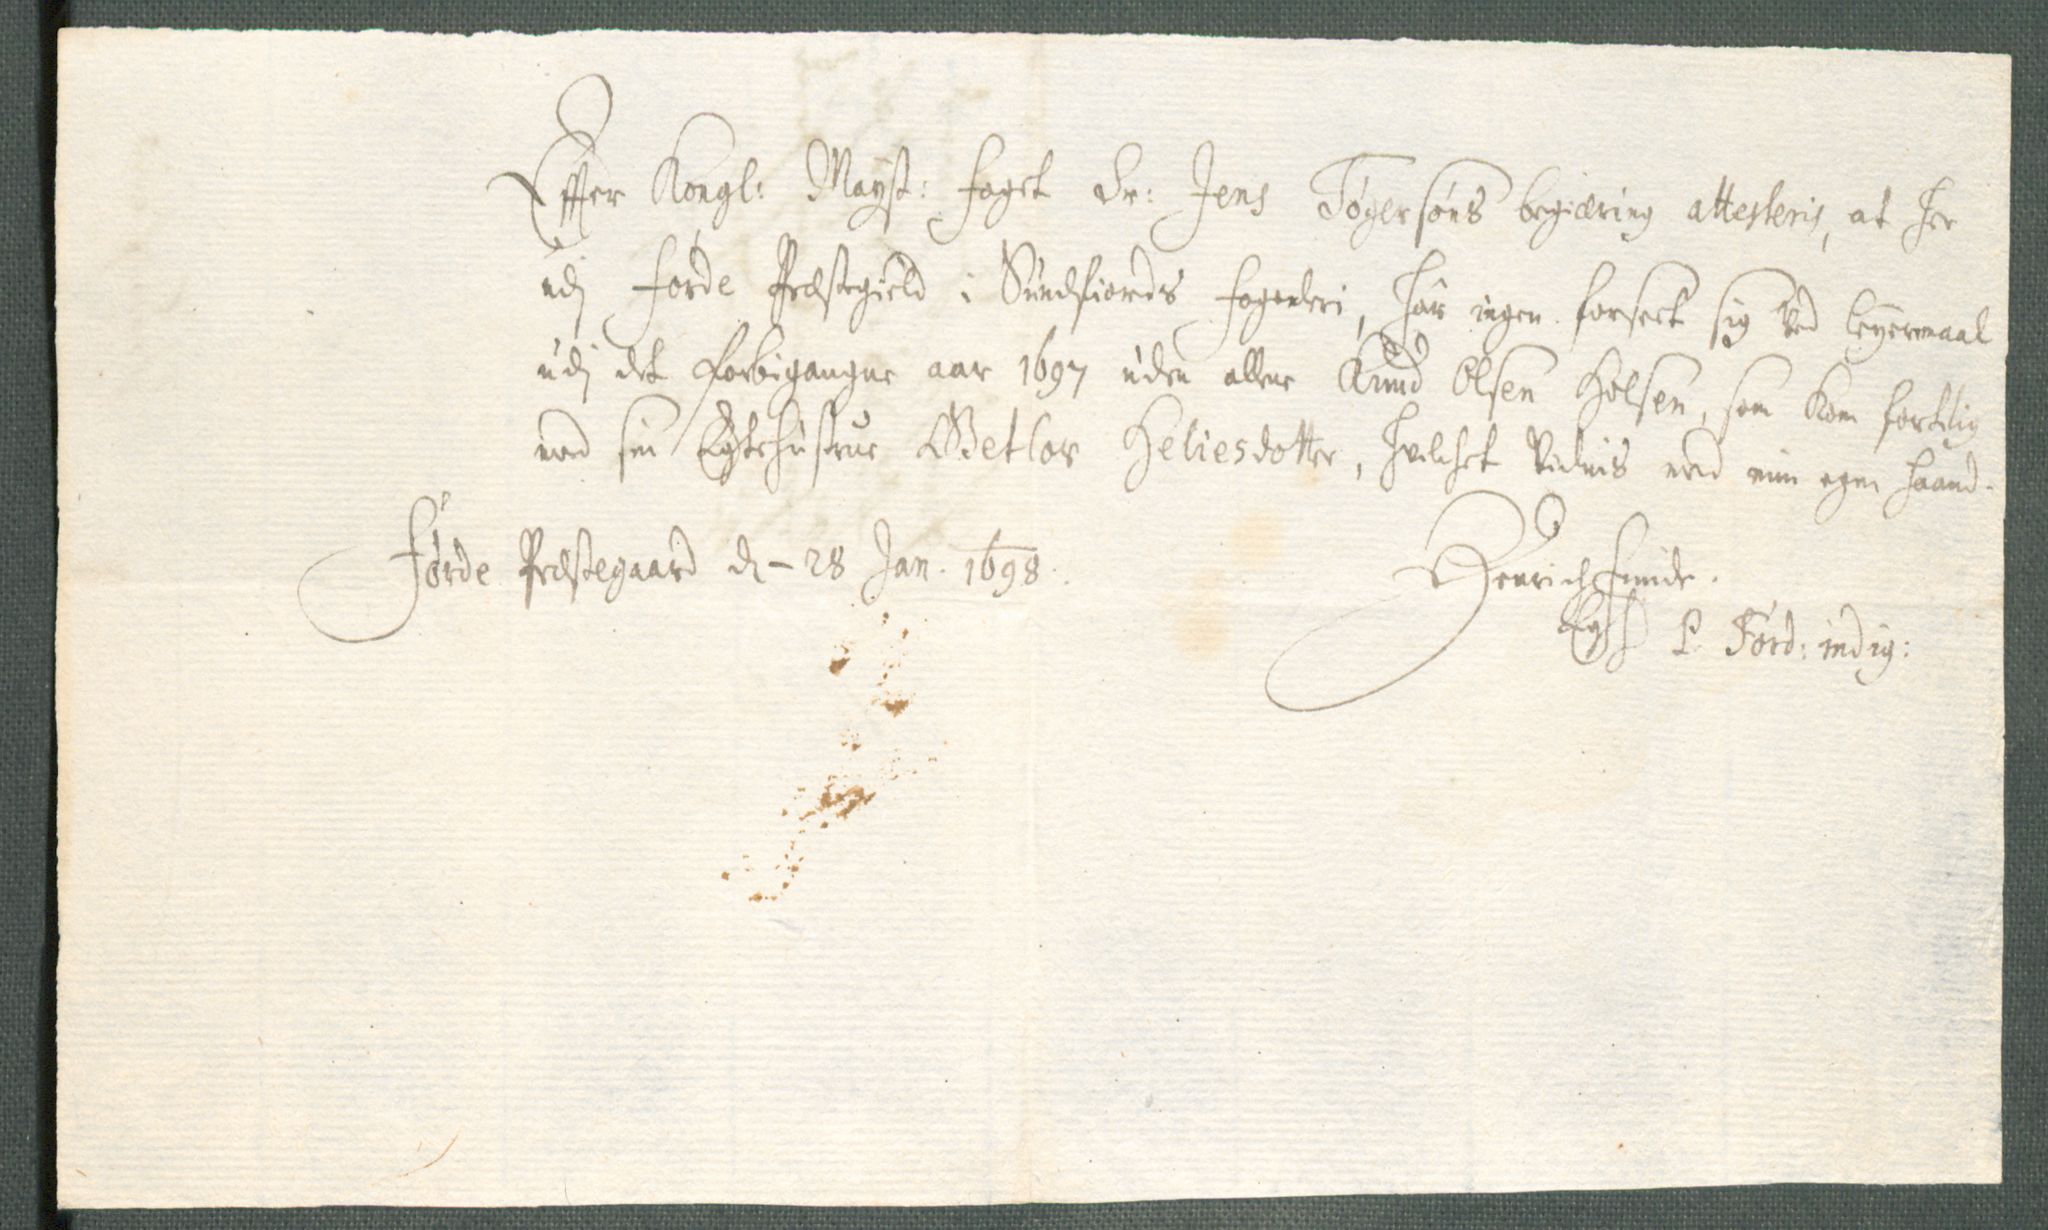 Effter Kongl: Mayst: foget Sr: Jens Tøgersøns begiæring attesteris, at her
udj Førde Præstegield i Sundfiords fogederi, har ingen forseet sig ved leyermaal
udj det forbigangne aar 1697 uden allene Knud Olsen Holsen, som kom fortilig
med sin Egtehustrue Getlor Heliesdotter, hvilchet Vidnis med min egen haand.
Førde Præstegaard d – 28 Jan. 1698.
Henrich
P. Førd: indig: